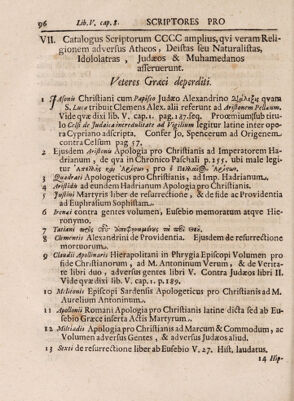 96 Lib. V. cap. 8. SCRIPTORES PRO
VII. Catalogus Scriptorum CCCC amplius, qvi veram Reli-
gionem adversus Atheos, Deistas seu Naturalistas,
Idololatras, Judæos & Muhamedanos
asseruerunt.
Veteres Græci deperditi.
1 Jasonis Christiani cum Papisco Judæo Alexandrino qvam
S. Luca tribuit Clemens Alex. alii referunt ad Aristonem Pellæum.
Vide qvæ dixi lib. V. cap. 1. pag. 47. seq. Proœmium sub titu-
lo Celsi de Judaica incredulitate ad Vigilium legitur latine inter ope-
ra Cypriano adscripta. Confer Jo. Spencerum ad Origenem
contra Celsum pag. 57.
2 Ejusdem Aristonis Apologia pro Christianis ad Imperatorem Ha-
drianum, de qva in Chronico Paschali p. 255. ubi male legi-
tur pro
3 Quadrati Apologeticus pro Christianis, ad Imp. Hadrianum.
4 Aristidis ad eundem Hadrianum Apologia pro Christianis.
5 Justini Martyris liber de resurrectione, & de fide ac Providentia
ad Euphrasium Sophistam.
6 Irenæi contra gentes volumen, Eusebio memoratum atqve Hie-
ronymo.
7 Tatiani
8 Clementis Alexandrini de Providentia. Ejusdem de resurrectione
mortuorum.
9 Claudii Apollinaris Hierapolitani in Phrygia Episcopi Volumen pro
fide Christianorum, ad M. Antoninum Verum, & de Verita-
te libri duo, adversus gentes libri V. Contra Judæos libri II.
Vide qvæ dixi lib. V. cap. 1. p. 189.
10 Melitonis Episcopi Sardensis Apologeticus pro Christianis ad M.
Aurelium Antoninum.
11 Apollonii Romani Apologia pro Christianis latine dicta sed ab Eu-
sebio Græce inserta Actis Martyrum.
12 Miltiadis Apologia pro Christianis ad Marcum & Commodum, ac
Volumen adversus Gentes, & adversus Judæos aliud.
13 Sexti de resurrectione liber ab Eusebio V. 27. Hist. laudatus.
14 Hip-